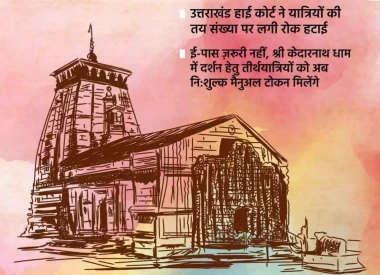 उत्तराखंड हाई कोर्ट ने यात्रियों की
तय संख्या पर लगी रोक हटाई
ई-पास ज़रूरी नहीं, श्री केदारनाथ धाम
में दर्शन हेतु तीर्थयात्रियों को अब
नि:शुल्क मैनुअल टोकन मिलेंगे